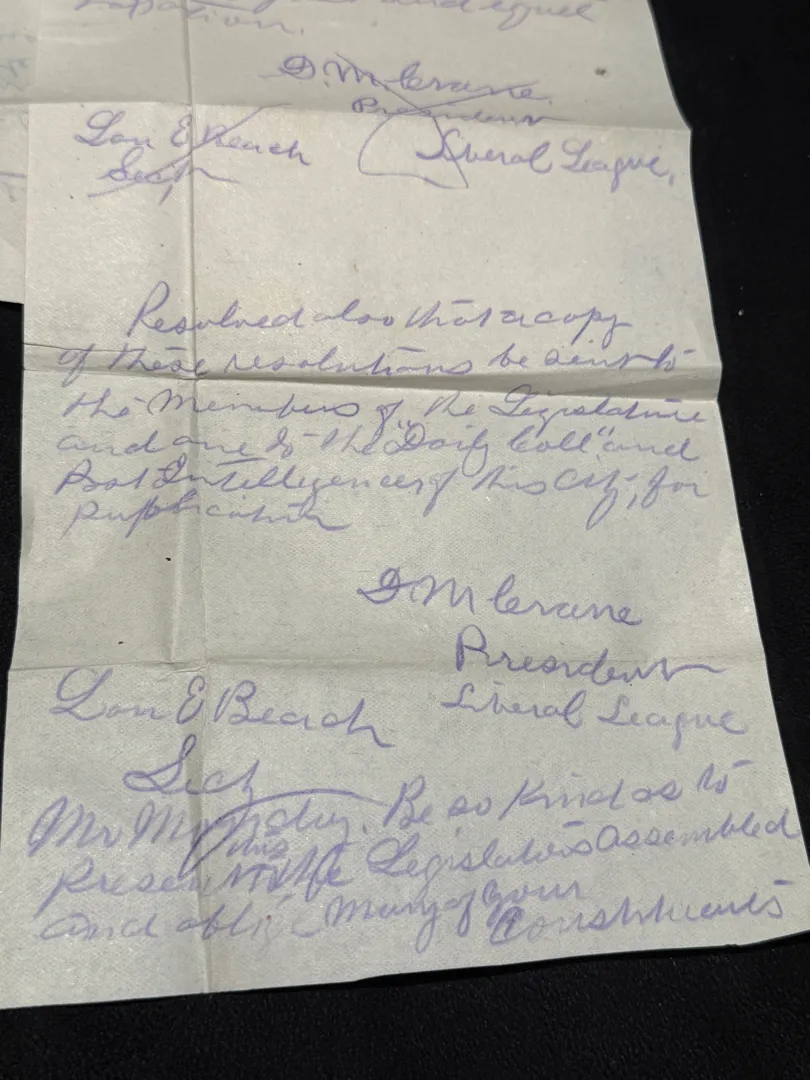 and equal
taxation.
D. M. Crane.
President
Lou E Beach
Liberal League,
Sect,
Resolved also that a copy
of these resolutions be sent to
the Members of the Legislature
and one to the "Daily Call" and
Post Intelligencer of this City, for
publication
D M Crane
President
Liberal League
Lou E Beach
Sect
Mr. Be so kind as to
present this to the Legislators assembled
and oblige Many of your
Constituents